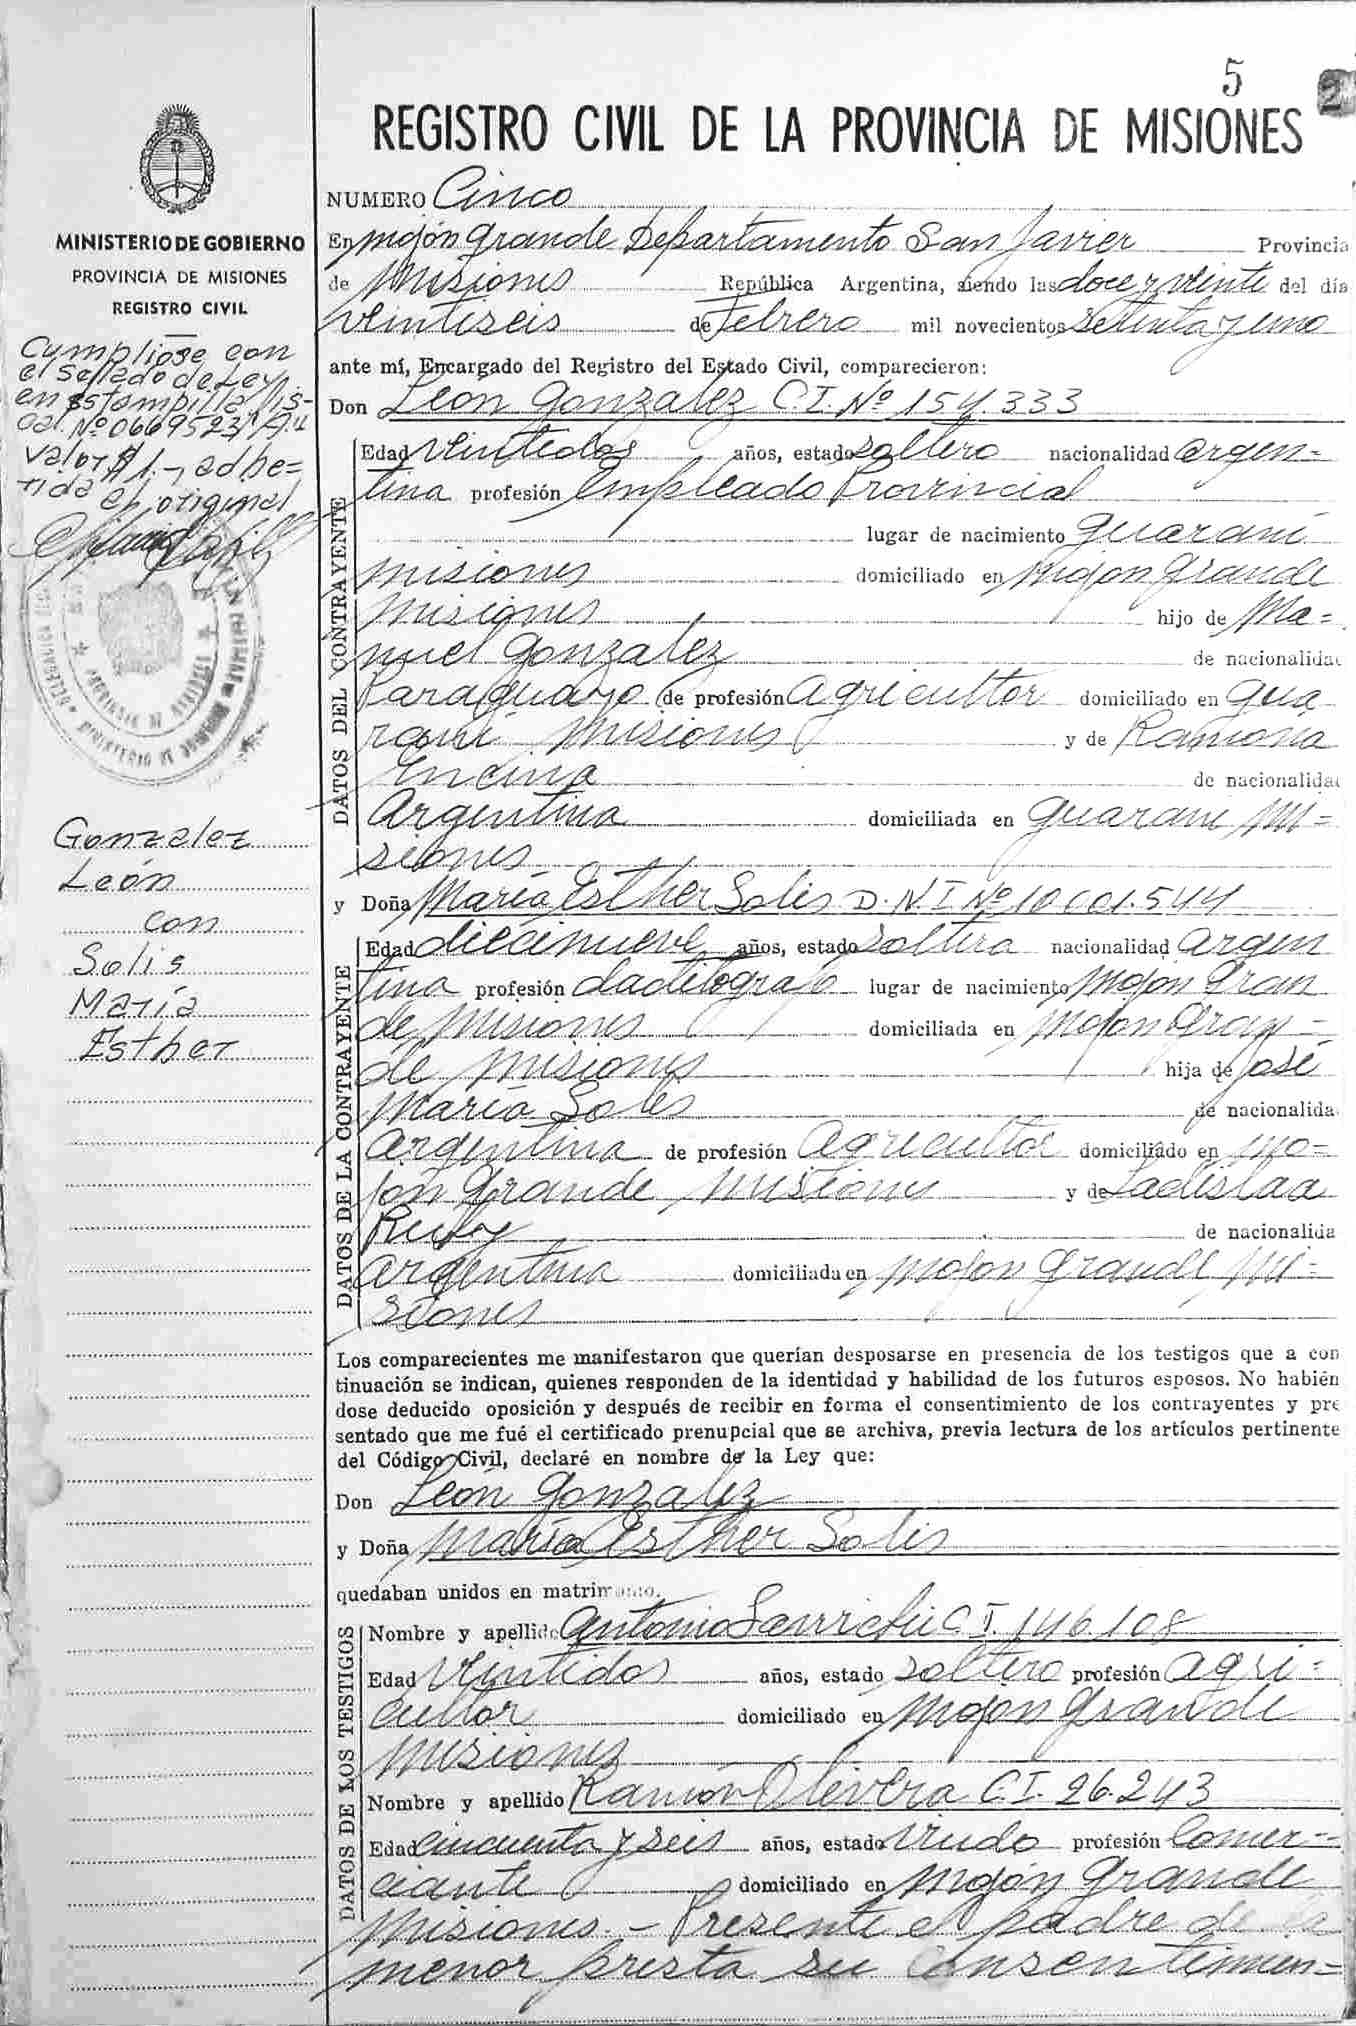 5
2
REGISTRO CIVIL DE LA PROVINCIA DE MISIONES
MINISTERIO DE GOBIERNO
PROVINCIA DE MISIONES
REGISTRO CIVIL
Cumpliose con
el Sellado de Ley
en Estampilla Fis-
cal Nº 0669523/
valor $ 1.-, adhe=
rida el original
Gonzalez
León
con
Solis
María
Esther
NUMERO Cinco
En Mojón Grande Departamento San Javier Provincia
de Misiones República Argentina, siendo las doce y veinte del día
veintiseis de Febrero mil novecientos setenta y uno
ante mí, Encargado del Registro del Estado Civil, comparecieron:
Don León Gonzalez C.I. Nº 154.333
DATOS DEL CONTRAYENTE
Edad veintidos años, estado soltero nacionalidad argen=
tina profesión Empleado Provincial
lugar de nacimiento Guaraní
Misiones domiciliado en Mojon Grande
Misiones hijo de Ma=
nuel Gonzalez de nacionalidad
Paraguayo de profesión Agricultor domiciliado en Gua
raní Misiones y de Ramona
Encina de nacionalidad
Argentina domiciliada en Guaraní Mi=
siones
y Doña María Esther Solis D.N.I Nº 10.001.544
DATOS DE LA CONTRAYENTE
Edad diecinueve años, estado soltera nacionalidad argen
tina profesión dactilografo lugar de nacimiento Mojon Gran
de Misiones domiciliada en Mojon Gran=
de Misiones hija de José
María Solis de nacionalida
Argentina de profesión Agricultor domiciliado en Mo=
jón Grande Misiones y de Ladislaa
de nacionalida
Argentina domiciliada en Mojon Grande Mi=
siones
Los comparecientes me manifestaron que querían desposarse en presencia de los testigos que a con
tinuación se indican, quienes responden de la identidad y habilidad de los futuros esposos. No habién
dose deducido oposición y después de recibir en forma el consentimiento de los contrayentes y pre
sentado que me fué el certificado prenupcial que se archiva, previa lectura de los artículos pertinente
del Código Civil, declaré en nombre de la Ley que:
Don León Gonzalez
y Doña María Esther Solis
quedaban unidos en matrimonio.
DATOS DE LOS TESTIGOS
Nombre y apellido Antonio C.I. 146.108
Edad veintidos años, estado soltero profesión Agri=
cultor domiciliado en Mojon Grande
Misiones
Nombre y apellido Ramón Olivera C.I. 26.243
Edad cincuenta y seis años, estado viudo profesión Comer=
ciante domiciliado en Mojón Grande
Misiones.- Presente el padre de la
menor presta su consentimien=